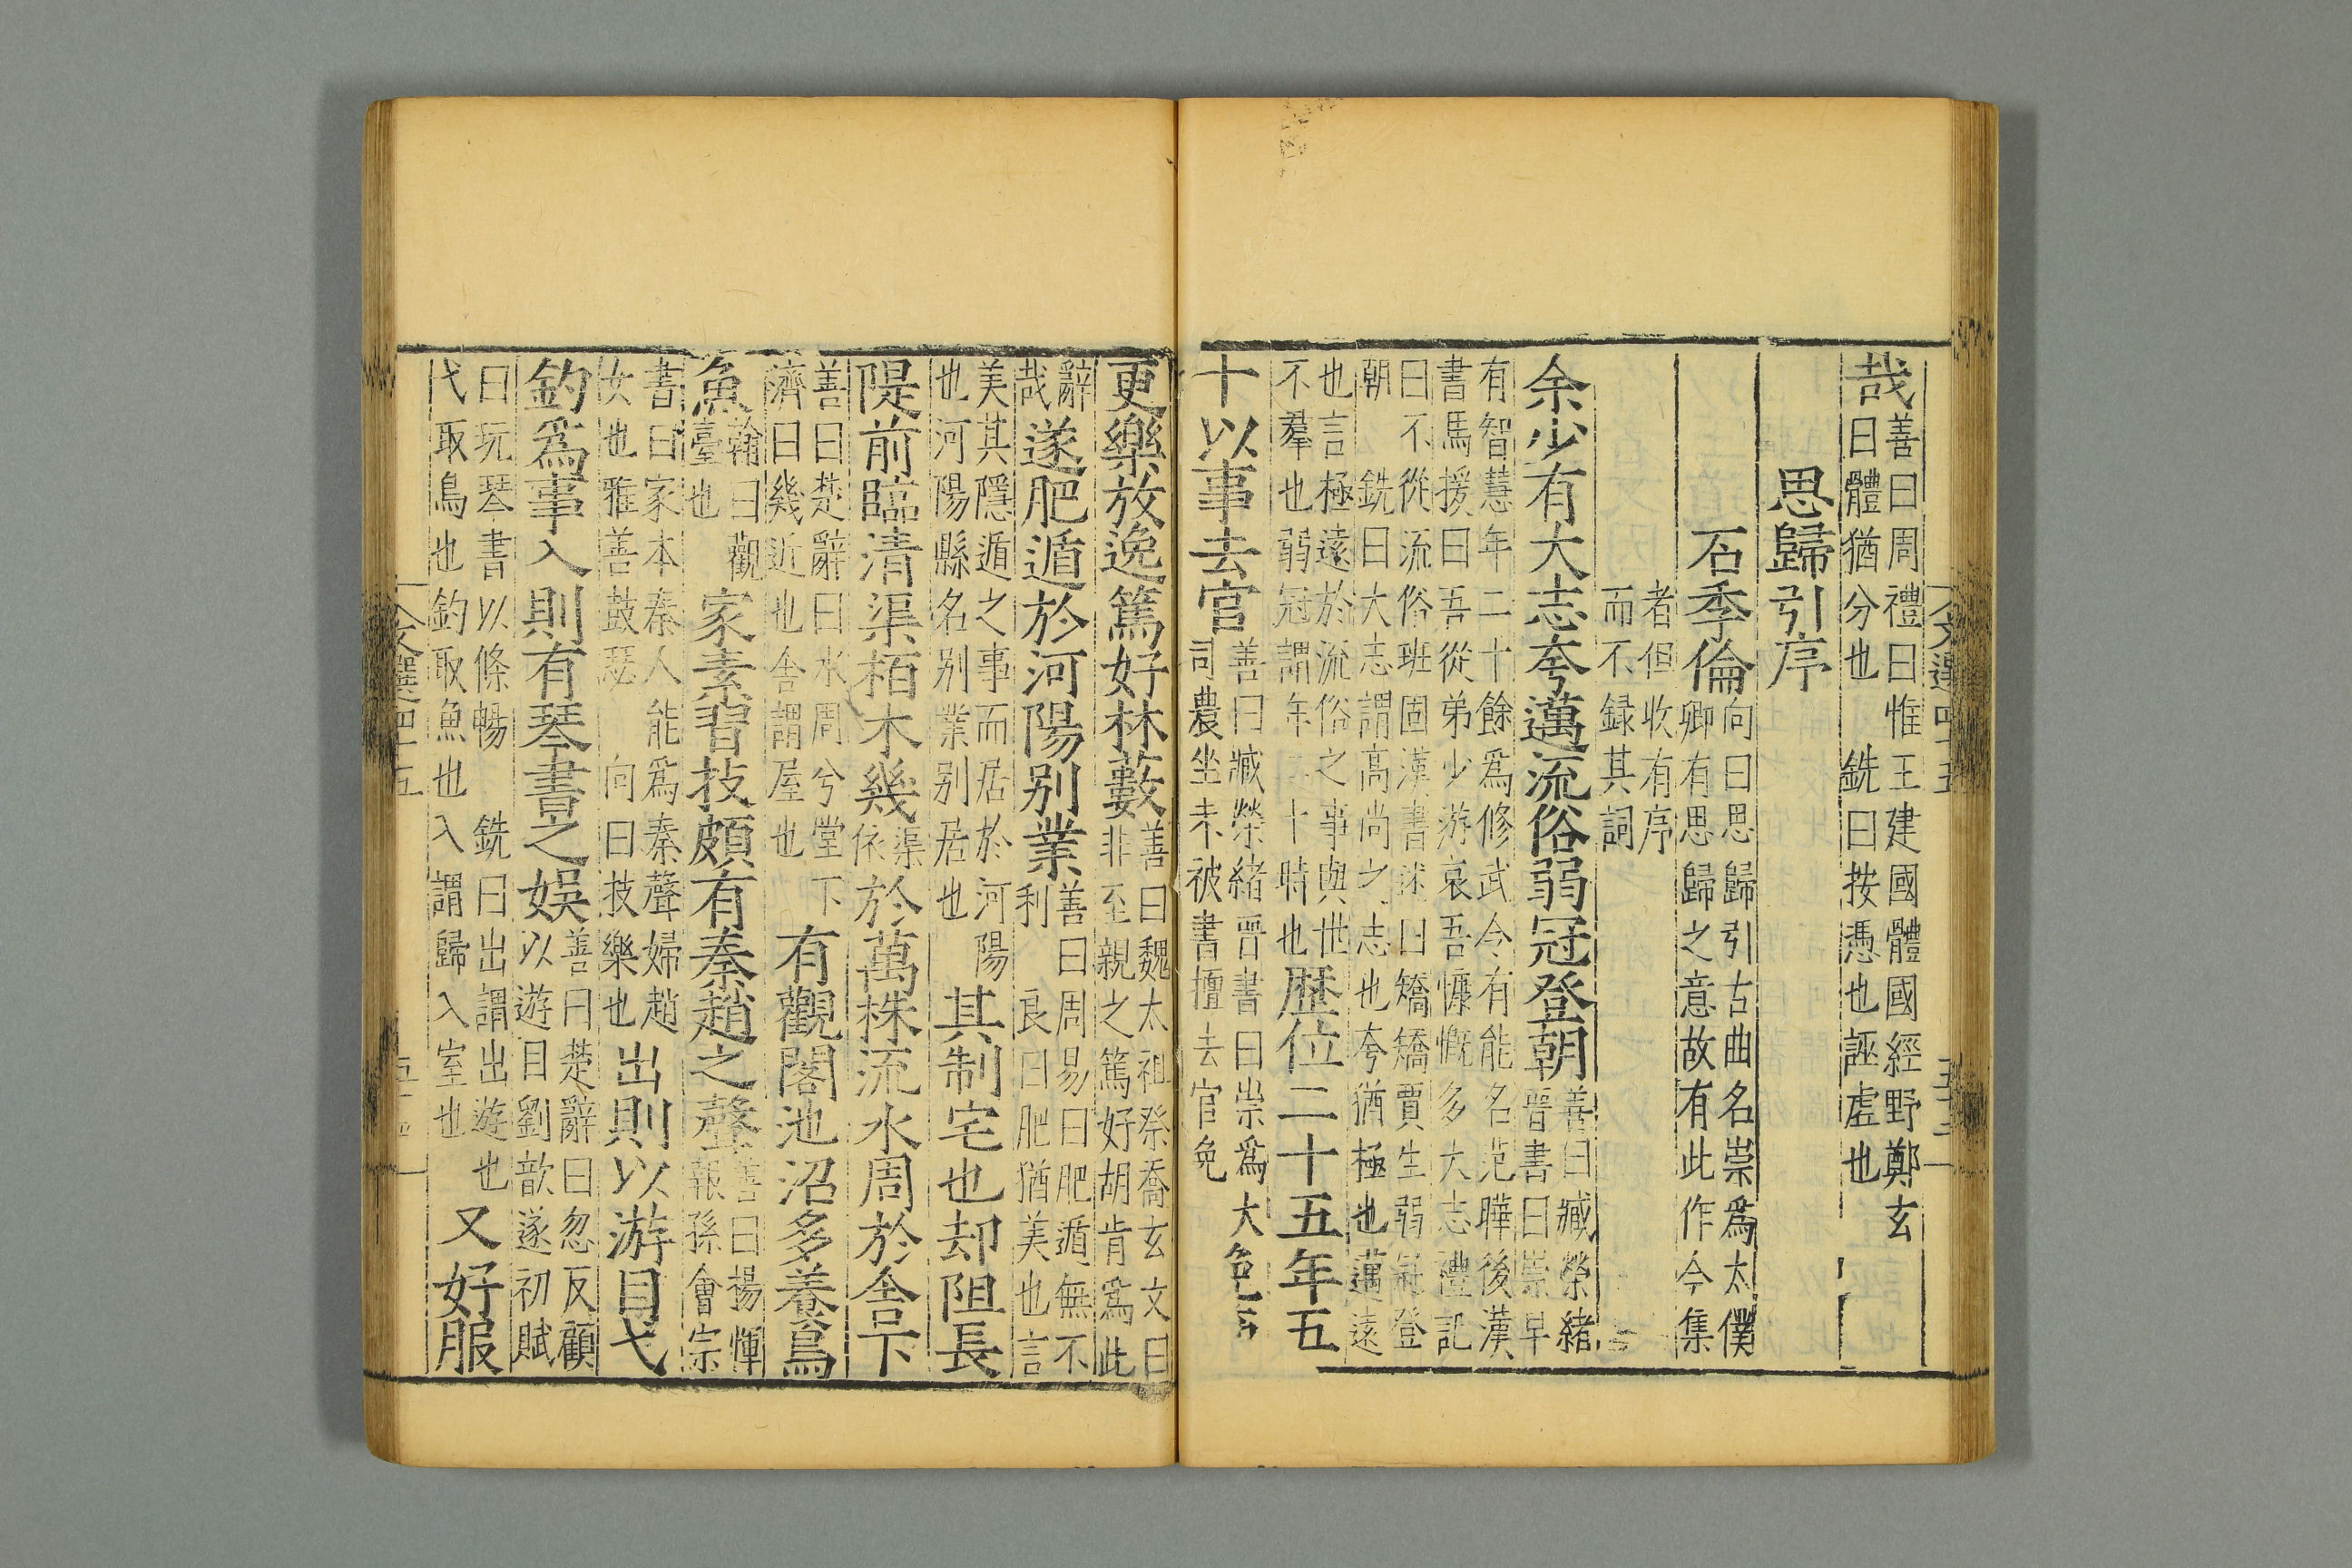 哉善曰周禮曰惟王建國體國經野鄭玄曰體猶分也 銑曰按憑也誣虛也
思歸引序
石季倫向曰思歸引古曲名崇爲太僕卿有思歸之意故有此作今集
者但收有序而不録其詞
余少有大志夸邁流俗弱冠登朝善曰臧榮緒晉書曰崇早
有智慧年二十餘爲修武令有能名范曄後漢書馬援曰吾從弟少游哀吾慷慨多大志禮記
曰不從流俗班固漢書述曰矯矯賈生弱冠登朝 銑曰大志謂高尚之志也夸猶極也邁遠
也言極遠於流俗之事與世不羣也弱冠謂年二十時也歷位二十五年五
十以事去官善曰臧榮緒晉書曰崇爲大司農坐未被書擅去官免
更樂放逸篤好林藪善曰魏太祖祭喬玄文曰非至親之篤好胡肯爲此
辭哉遂肥遁於河陽別業善曰周易曰肥遁無不利 良曰肥猶美也言
美其隱遁之事而居於河陽也河陽縣名別業別居也其制宅也却阻長
隄前臨清渠栢木幾渠依於萬株流水周於舍下
善曰楚辭曰水周兮堂下濟曰幾近也舍謂屋也有觀閣池沼多養鳥
魚翰曰觀臺也家素習技頗有秦趙之聲善曰楊惲報孫會宗
書曰家本秦人能爲秦聲婦趙女也雅善鼓瑟 向曰技樂也出則以游目弋
釣爲事入則有琴書之娛善曰楚辭曰忽反顧以遊目劉歆遂初賦
曰玩琴書以條暢 銑曰出謂出遊也弋取鳥也釣取魚也入謂歸入室也又好服
文選四十五